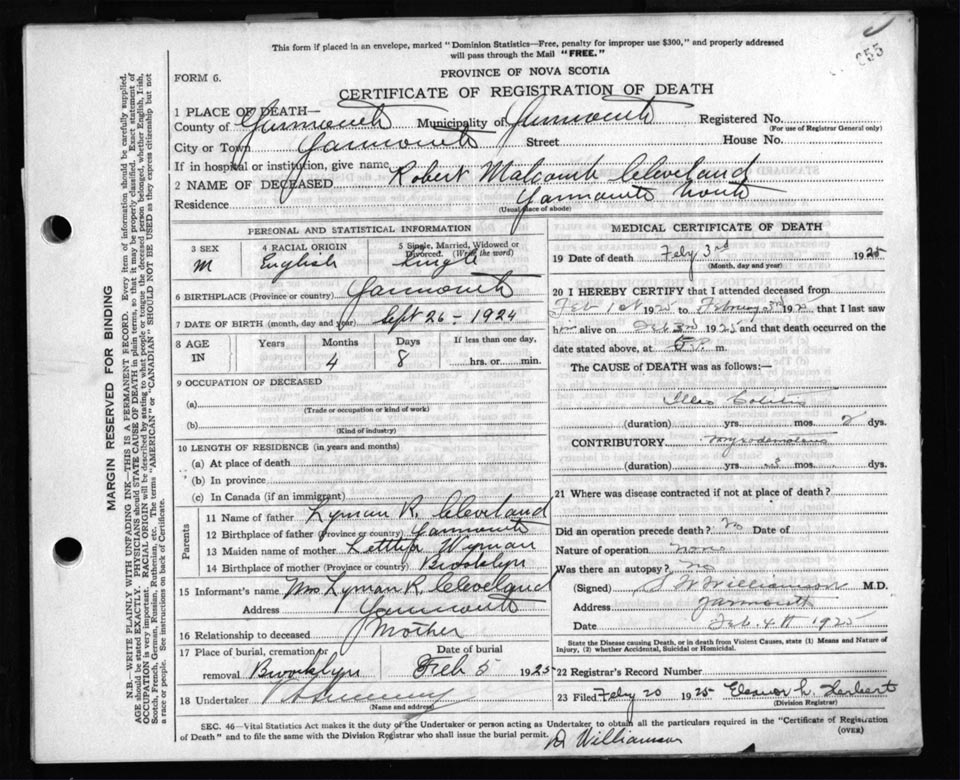 This form if placed in an envelope, marked "Dominion Statistics—Free, penalty for improper use $300," and properly addressed
will pass through the Mail "FREE."
655
FORM 6.
PROVINCE OF NOVA SCOTIA
CERTIFICATE OF REGISTRATION OF DEATH
MARGIN RESERVED FOR BINDING
N.B.—WRITE PLAINLY WITH UNFADING INK—THIS IS A PERMANENT RECORD. Every item of information should be carefully supplied.
AGE should be stated EXACTLY. PHYSICIANS should STATE CAUSE OF DEATH in plain terms, so that it may be properly classified. Exact statement of
OCCUPATION is very important. RACIAL ORIGIN will be described by stating to what people or tongue the deceased person belonged, whether English, Irish,
Scotch, French, German, Russian, Ruthenian, etc. The terms "AMERICAN" or "CANADIAN" SHOULD NOT BE USED as they express citizenship but not
a race or people. See instructions on back of Certificate.
1 PLACE OF DEATH—
County of Yarmouth Municipality of Yarmouth Registered No.
(For use of Registrar General only)
City or Town Yarmouth Street House No.
If in hospital or institution, give name
2 NAME OF DECEASED Robert Malcomb Cleveland
Residence Yarmouth North
(Usual place of abode)
PERSONAL AND STATISTICAL INFORMATION
3 SEX 4 RACIAL ORIGIN 5 Single, Married, Widowed or
Divorced. (Write the word)
M English Single
6 BIRTHPLACE (Province or country) Yarmouth
7 DATE OF BIRTH (month, day and year) Sept 26 - 1924
8 AGE IN Years Months Days If less than one day,
4 8 hrs. or min.
9 OCCUPATION OF DECEASED
(a)
(Trade or occupation or kind of work)
(b)
(Kind of industry)
10 LENGTH OF RESIDENCE (in years and months)
(a) At place of death
(b) In province
(c) In Canada (if an immigrant)
Parents
11 Name of father Lyman R. Cleveland
12 Birthplace of father (Province or country) Yarmouth
13 Maiden name of mother Wyman
14 Birthplace of mother (Province or country) Brooklyn
15 Informant's name Mrs Lyman R. Cleveland
Address Yarmouth
16 Relationship to deceased Mother
17 Place of burial, cremation or Date of burial
removal Brooklyn Feb 5 1925
18 Undertaker
(Name and address)
MEDICAL CERTIFICATE OF DEATH
19 Date of death Feby 3rd 1925
(Month, day and year)
20 I HEREBY CERTIFY that I attended deceased from
Feb 1st 1925 to February 3rd 1925, that I last saw
him alive on Feb 3rd 1925 and that death occurred on the
date stated above, at 5 P. m.
The CAUSE OF DEATH was as follows:—
Ileo Colitis
(duration) yrs. mos. 2 dys.
CONTRIBUTORY
(duration) yrs. mos. dys.
21 Where was disease contracted if not at place of death?
Did an operation precede death? No Date of
Nature of operation none
Was there an autopsy? No
(Signed) Williamson M.D.
Address Yarmouth
Date Feb. 4th 1925
State the Disease causing Death, or in death from Violent Causes, state (1) Means and Nature of
Injury, (2) whether Accidental, Suicidal or Homicidal.
22 Registrar's Record Number
23 Filed Feby 20 1925 Eleanor L. Herbert
(Division Registrar)
SEC. 46—Vital Statistics Act makes it the duty of the Undertaker or person acting as Undertaker, to obtain all the particulars required in the "Certificate of Registration
of Death" and to file the same with the Division Registrar who shall issue the burial permit.
(OVER)
Dr Williamson